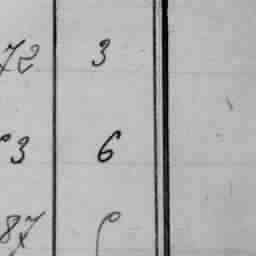 72 3
3 6
87